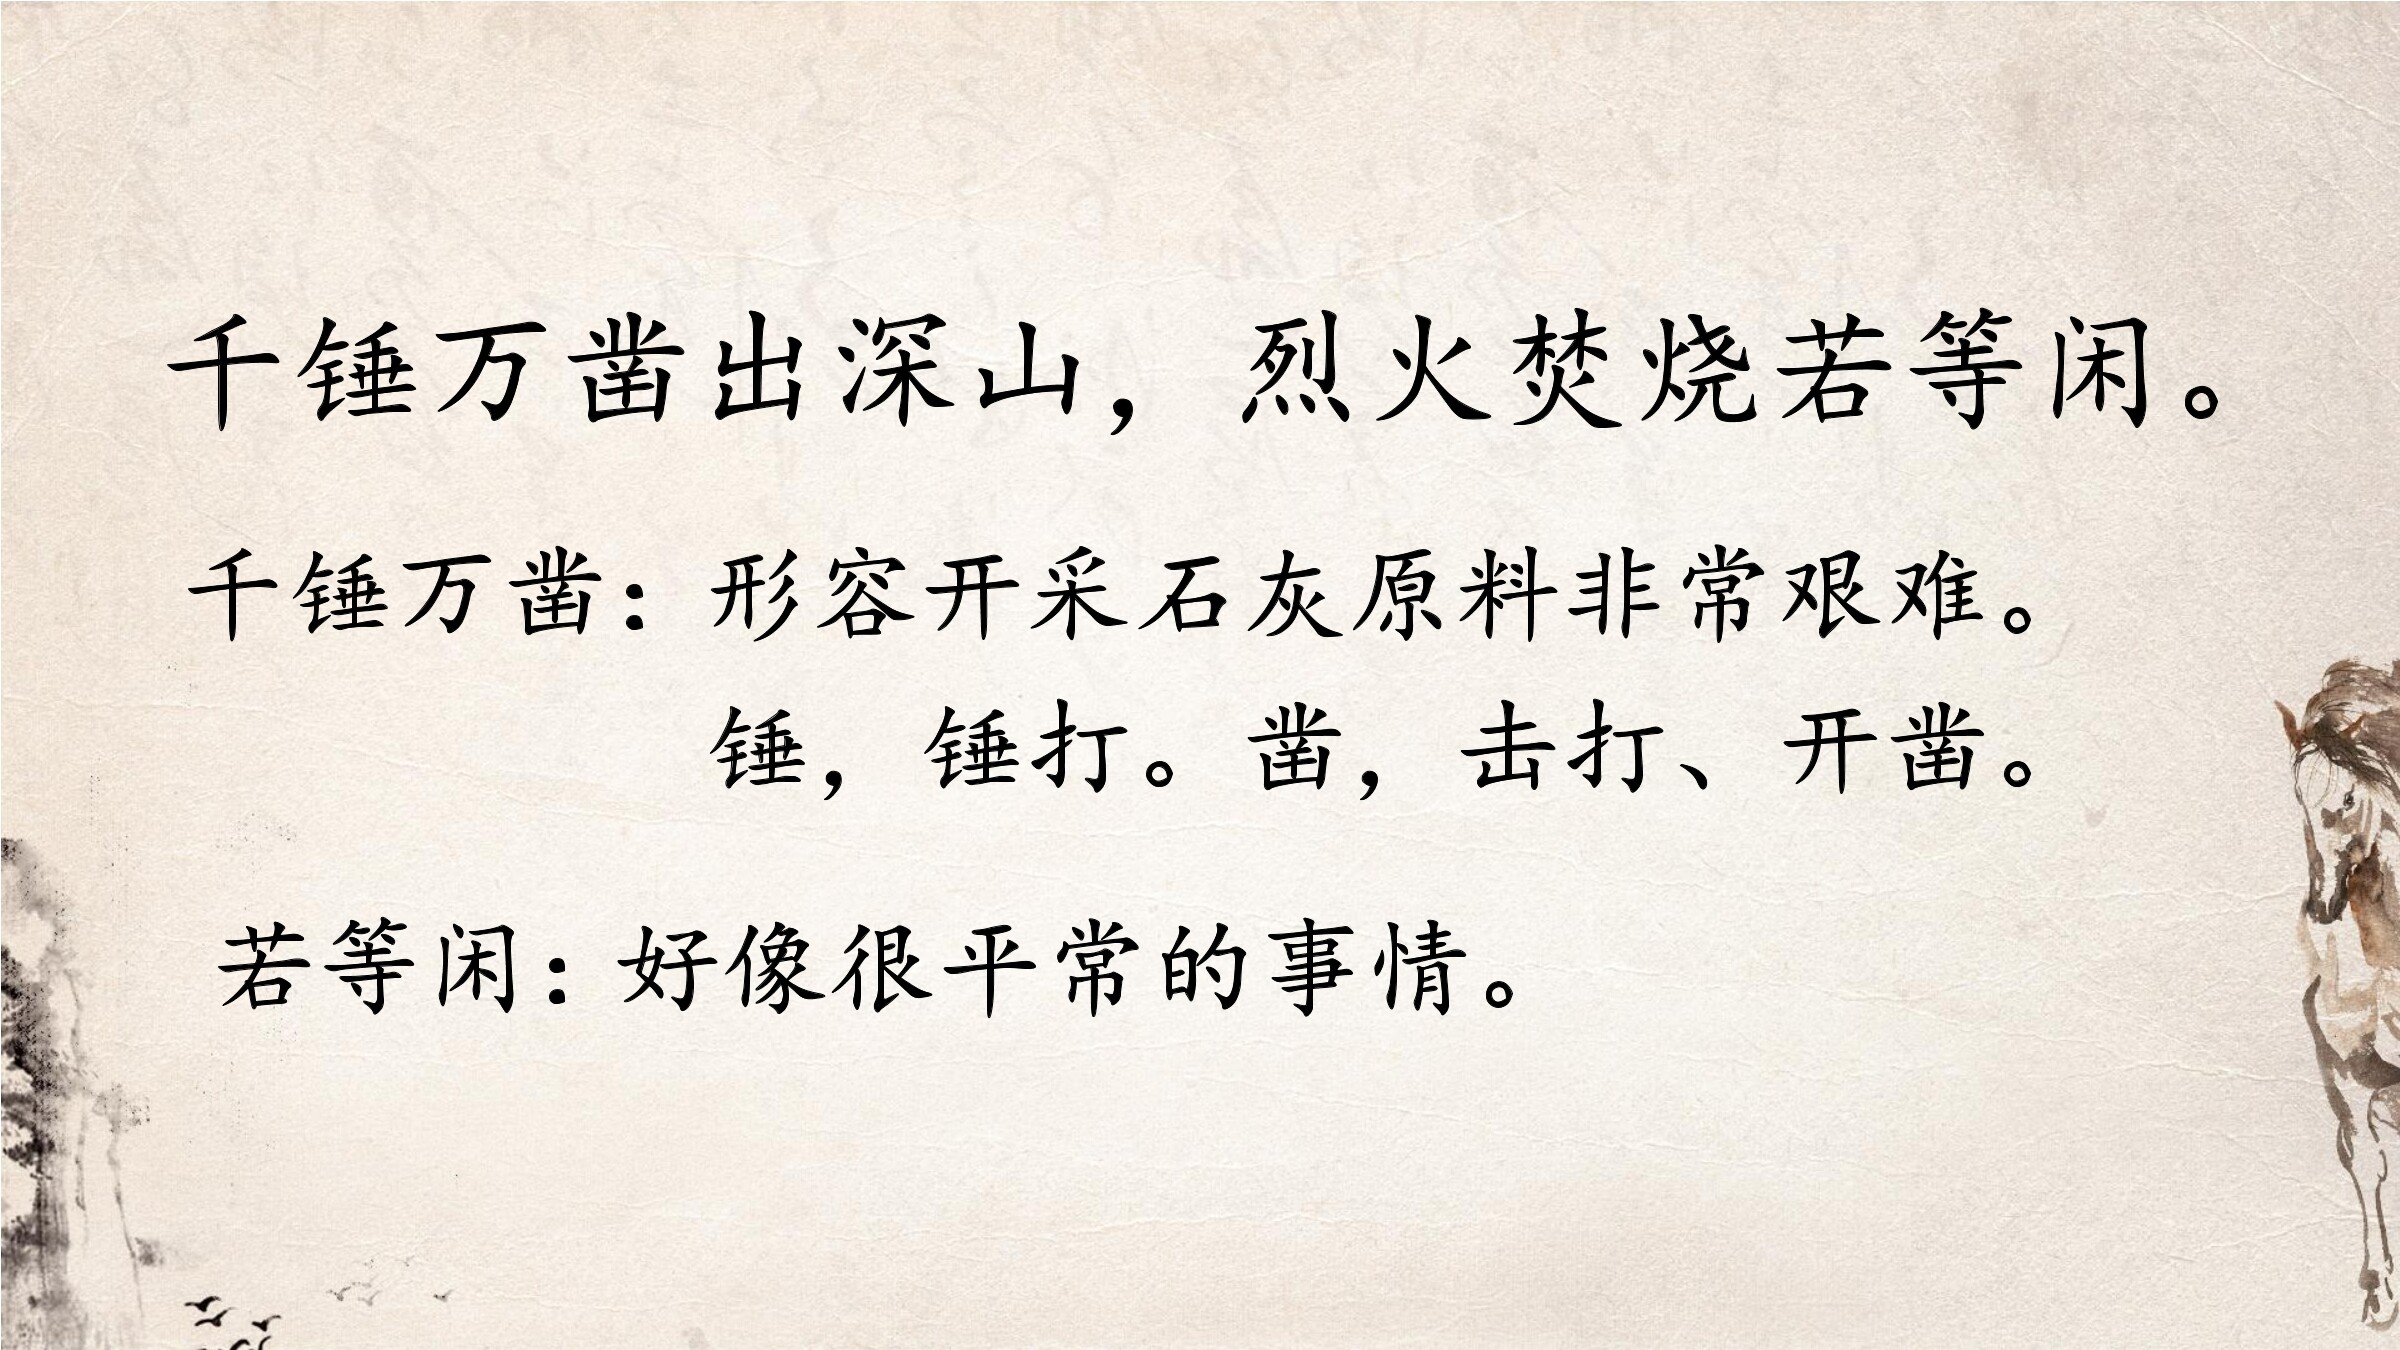 千锤万凿出深山，烈火焚烧若等闲。
千锤万凿：形容开采石灰原料非常艰难。
锤，锤打。凿，击打、开凿。
若等闲：好像很平常的事情。